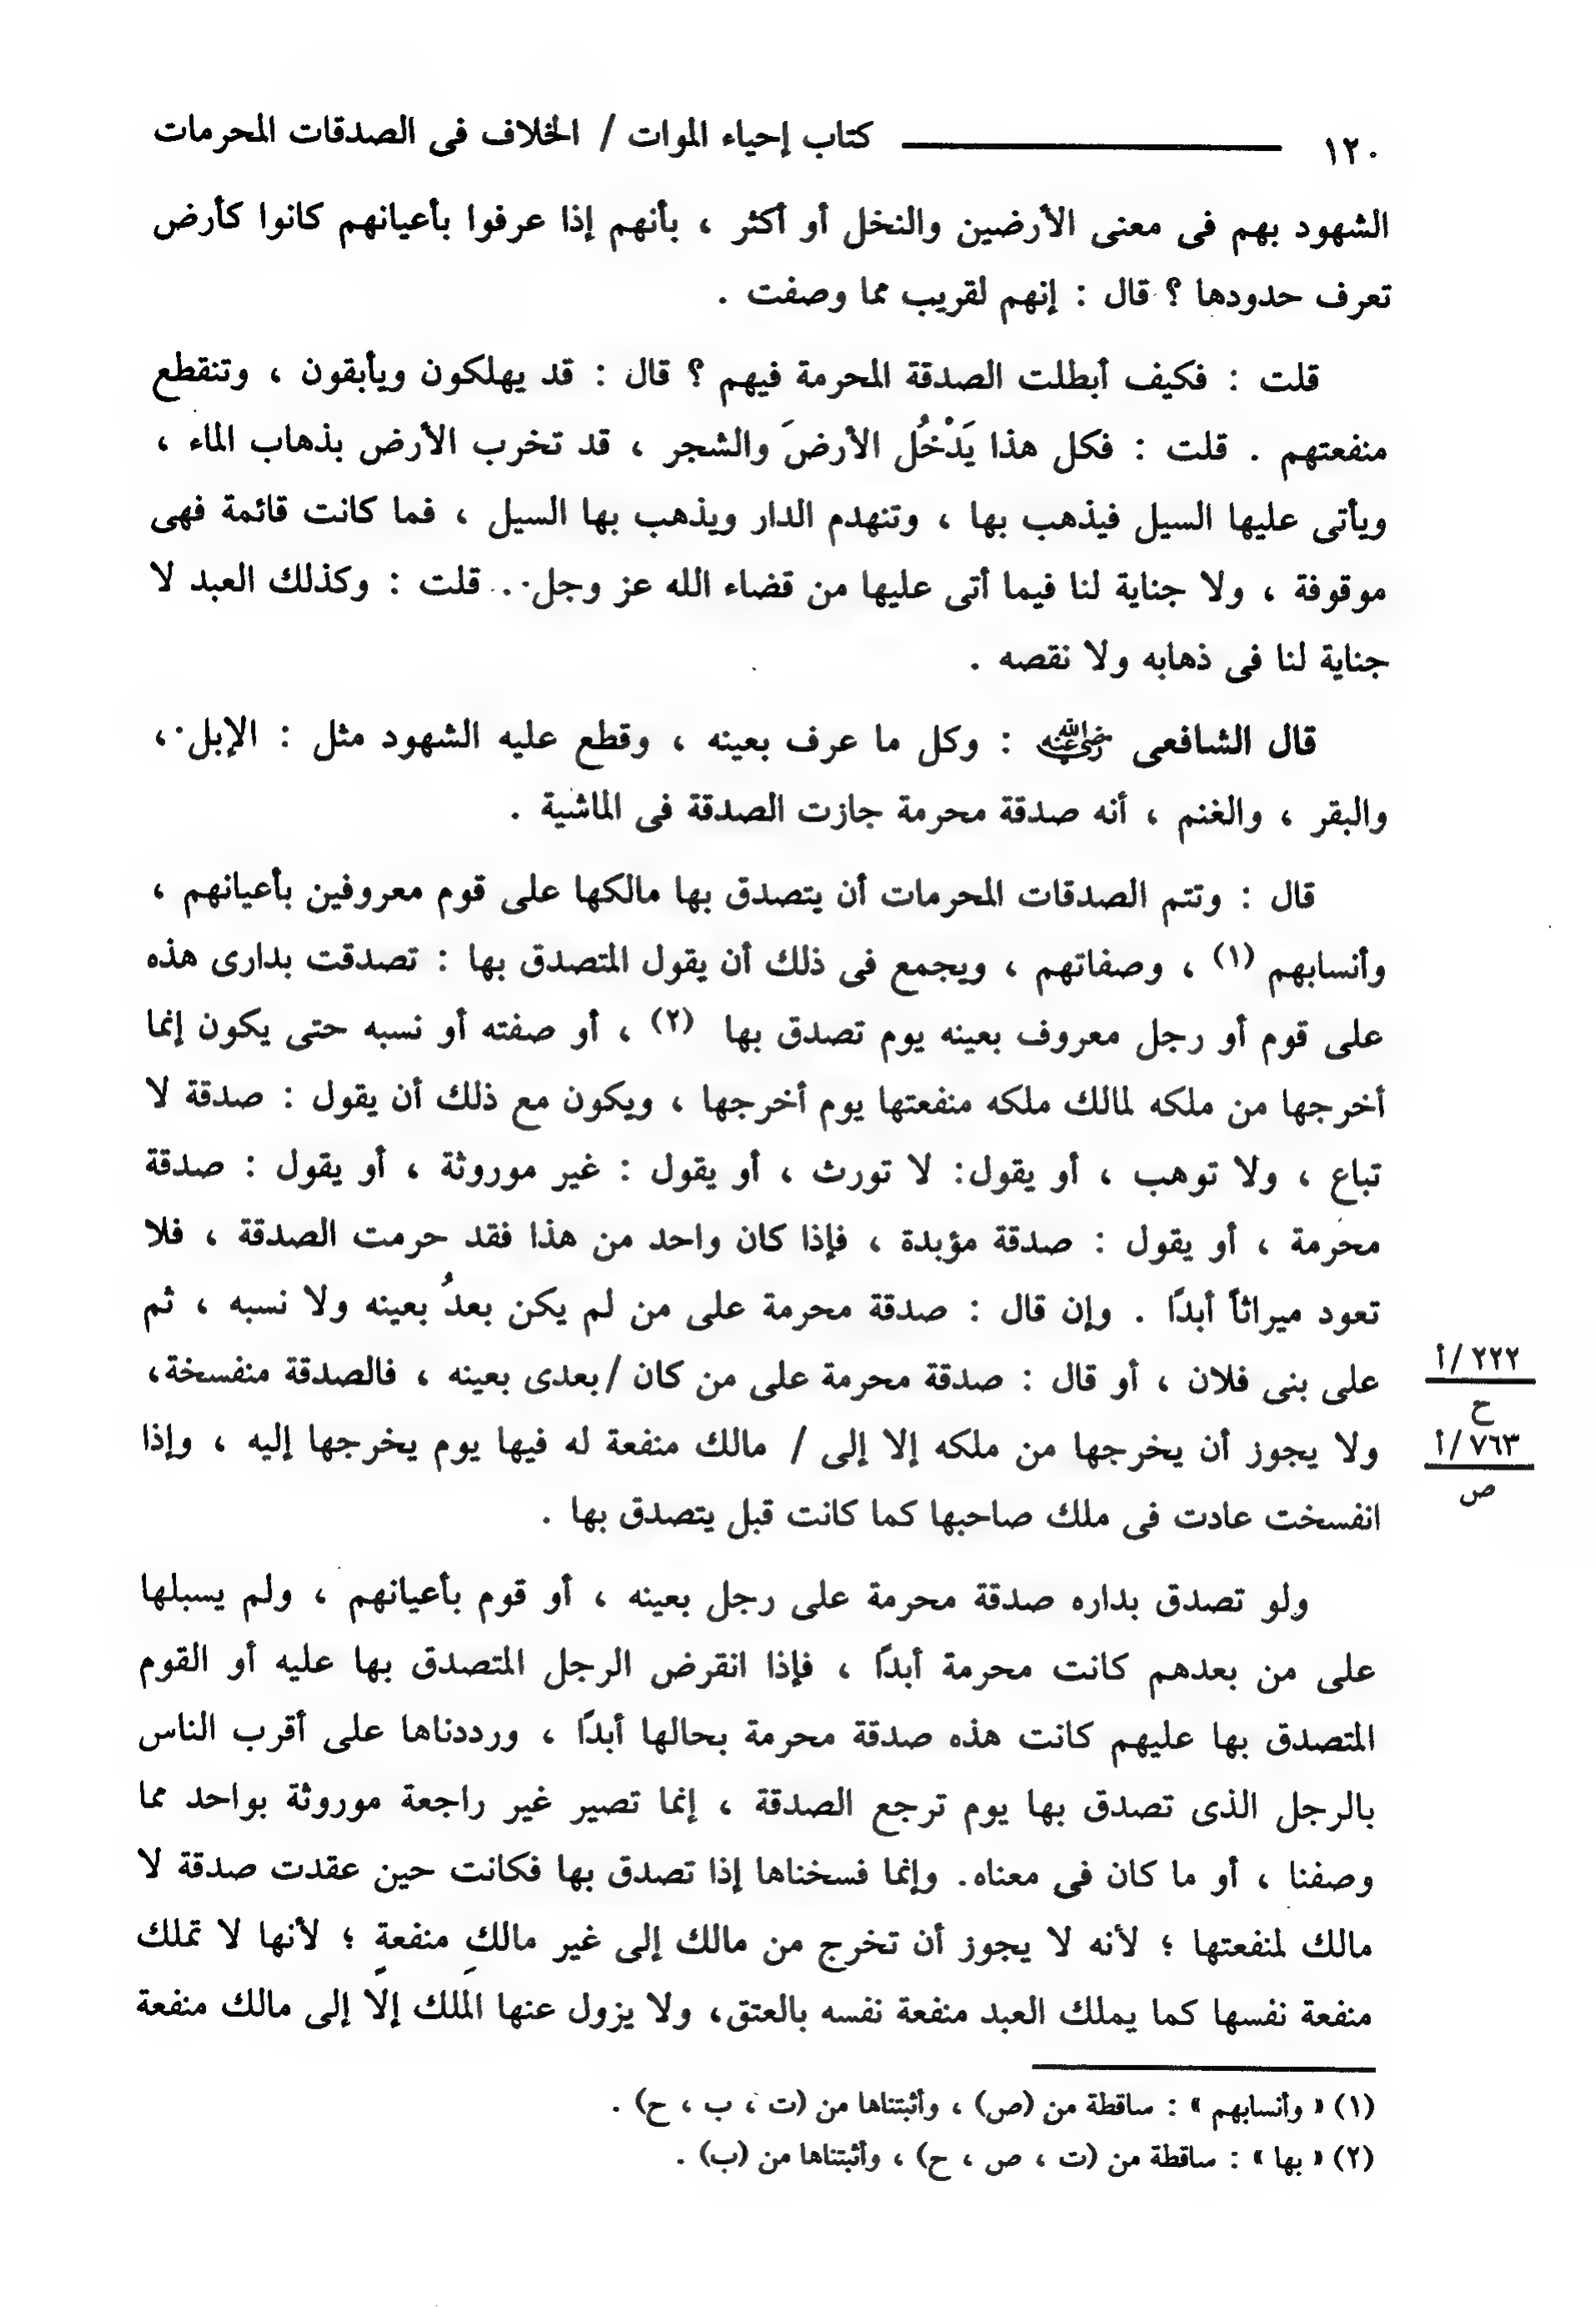 ١٢٠ كتاب إحياء الموات / الخلاف فى الصدقات المحرمات
الشهود بهم فى معنى الأرضين والنخل أو أكثر ، بأنهم إذا عرفوا بأعيانهم كانوا كأرض
تعرف حدودها ؟ قال : إنهم لقريب مما وصفت .
قلت : فكيف أبطلت الصدقة المحرمة فيهم ؟ قال : قد يهلكون ويأبقون ، وتنقطع
منفعتهم . قلت : فكل هذا يَدْخُل الأرضَ والشجر ، قد تخرب الأرض بذهاب الماء ،
ويأتى عليها السيل فيذهب بها ، وتنهدم الدار ويذهب بها السيل ، فما كانت قائمة فهى
موقوفة ، ولا جناية لنا فيما أتى عليها من قضاء الله عز وجل . قلت : وكذلك العبد لا
جناية لنا فى ذهابه ولا نقصه .
قال الشافعى رضي الله عنه : وكل ما عرف بعينه ، وقطع عليه الشهود مثل : الإبل ،
والبقر ، والغنم ، أنه صدقة محرمة جازت الصدقة فى الماشية .
قال : وتتم الصدقات المحرمات أن يتصدق بها مالكها على قوم معروفين بأعيانهم ،
وأنسابهم (١) ، وصفاتهم ، ويجمع فى ذلك أن يقول المتصدق بها : تصدقت بدارى هذه
على قوم أو رجل معروف بعينه يوم تصدق بها (٢) ، أو صفته أو نسبه حتى يكون إنما
أخرجها من ملكه لمالك ملكه منفعتها يوم أخرجها ، ويكون مع ذلك أن يقول : صدقة لا
تباع ، ولا توهب ، أو يقول: لا تورث ، أو يقول : غير موروثة ، أو يقول : صدقة
محرمة ، أو يقول : صدقة مؤبدة ، فإذا كان واحد من هذا فقد حرمت الصدقة ، فلا
تعود ميراثاً أبدًا . وإن قال : صدقة محرمة على من لم يكن بعدُ بعينه ولا نسبه ، ثم
على بنى فلان ، أو قال : صدقة محرمة على من كان / بعدى بعينه ، فالصدقة منفسخة،
ولا يجوز أن يخرجها من ملكه إلا إلى / مالك منفعة له فيها يوم يخرجها إليه ، وإذا
انفسخت عادت فى ملك صاحبها كما كانت قبل يتصدق بها .
٢٢٢/أ
ح
٧٦٣/أ
ص
ولو تصدق بداره صدقة محرمة على رجل بعينه ، أو قوم بأعيانهم ، ولم يسبلها
على من بعدهم كانت محرمة أبدًا ، فإذا انقرض الرجل المتصدق بها عليه أو القوم
المتصدق بها عليهم كانت هذه صدقة محرمة بحالها أبدًا ، ورددناها على أقرب الناس
بالرجل الذى تصدق بها يوم ترجع الصدقة ، إنما تصير غير راجعة موروثة بواحد مما
وصفنا ، أو ما كان فى معناه. وإنما فسخناها إذا تصدق بها فكانت حين عقدت صدقة لا
مالك لمنفعتها ؛ لأنه لا يجوز أن تخرج من مالك إلى غير مالكِ منفعةٍ ؛ لأنها لا تملك
منفعة نفسها كما يملك العبد منفعة نفسه بالعتق، ولا يزول عنها الملك إلا إلى مالك منفعة
(١) « وأنسابهم » : ساقطة من (ص) ، وأثبتناها من (ت ، ب ، ح) .
(٢) « بها » : ساقطة من (ت ، ص ، ح) ، وأثبتناها من (ب) .